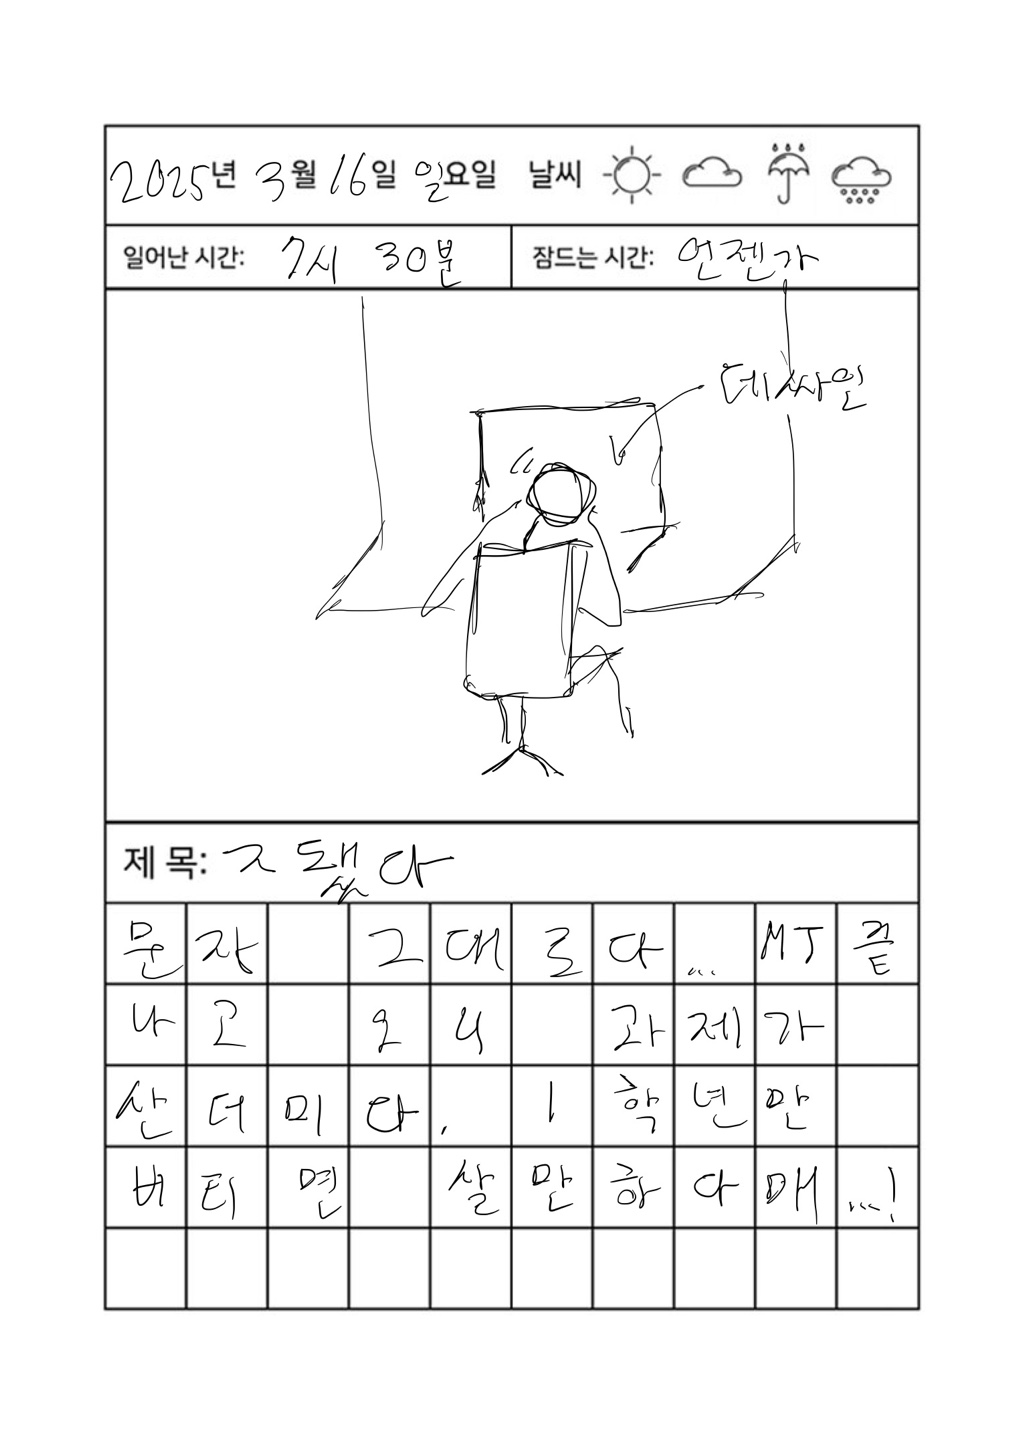 2025년 3월 16일 일요일 날씨
일어난 시간: 7시 30분 잠드는 시간: 언젠가
데싸인
제 목: ㅈ됐다
문장 그대로다... MT 끝
나고 오니 과제가
산더미다. 1학년만
버티면 살만하다매...!